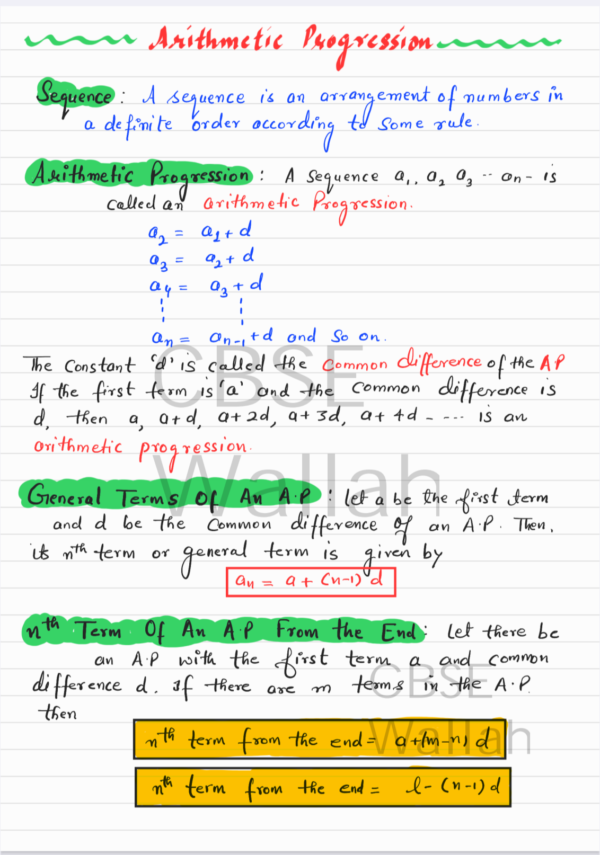 Arithmetic Progression
Sequence : A sequence is an arrangement of numbers in
a definite order according to some rule.
Arithmetic Progression : A Sequence a₁, a₂ a₃ -- an- is
called an arithmetic Progression.
a₂ = a₁ + d
a₃ = a₂ + d
a₄ = a₃ + d
aₙ = aₙ₋₁ + d and so on.
The Constant 'd' is called the common difference of the AP
If the first term is 'a' and the common difference is
d, then a, a+d, a+2d, a+3d, a+4d - --- is an
arithmetic progression.
CBSE
Wallah
General Terms Of An A.P : let a be the first term
and d be the common difference of an A.P. Then,
its nᵗʰ term or general term is given by
aₙ = a + (n-1) d
nᵗʰ Term Of An A.P From the End : Let there be
an A.P with the first term a and common
difference d. If there are m terms in the A.P.
then
CBSE
Wallah
nᵗʰ term from the end = a+(m-n) d
nᵗʰ term from the end = l - (n-1) d